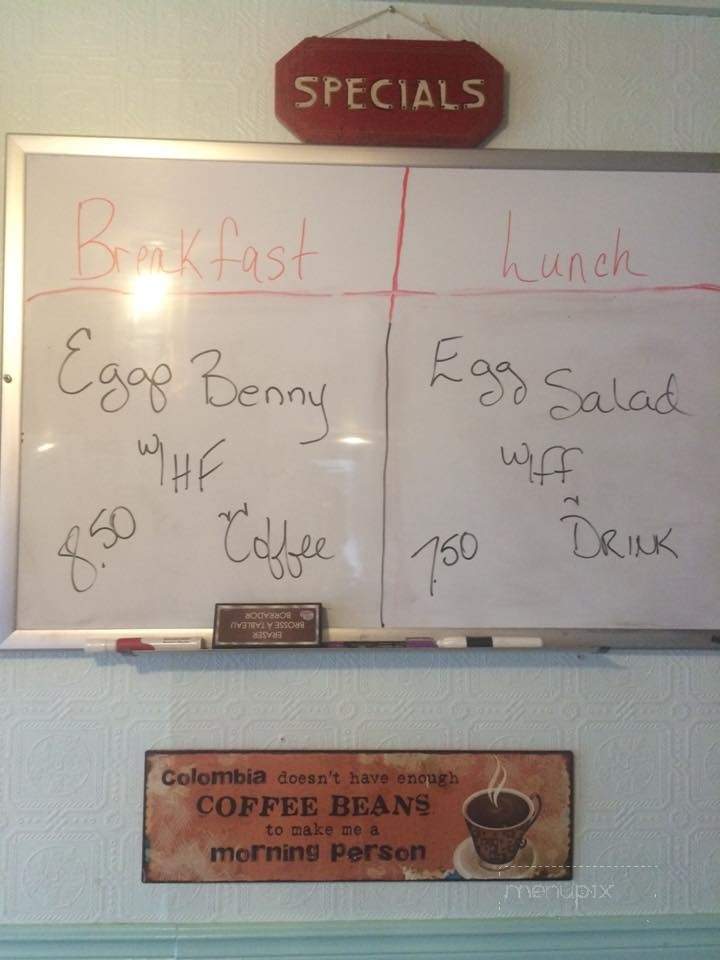 SPECIALS
Breakfast
Lunch
Eggs Benny
w/HF
8.50
Coffee
Egg Salad
w/ff
7.50
DRINK
ERASER
BROSSE À TABLEAU
BORRADOR
Colombia doesn't have enough
COFFEE BEANS
to make me a
morning person
menupix